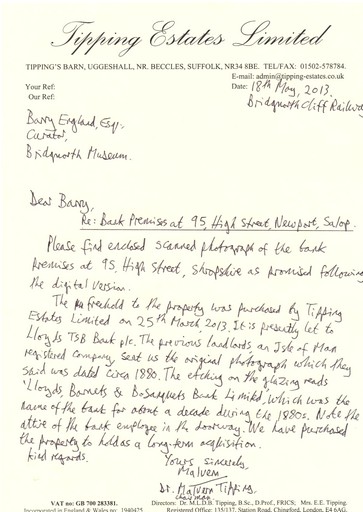 Tipping Estates Limited
TIPPING'S BARN, UGGESHALL, NR. BECCLES, SUFFOLK, NR34 8BE. TEL/FAX: 01502-578784.
E-mail: admin@tipping-estates.co.uk
Your Ref:
Date: 18th May, 2013.
Our Ref:
Bridgnorth Cliff Railway
Barry England, Esq.,
Curator,
Bridgnorth Museum.
Dear Barry,
Re: Bank Premises at 95, High Street, Newport, Salop.
Please find enclosed scanned photograph of the bank
premises at 95, High Street, Shropshire as promised following
the digital version.
The freehold to the property was purchased by Tipping
Estates Limited on 25th March 2013. It is presently let to
Lloyds TSB Bank plc. The previous landlords an Isle of Man
registered company, sent us the original photograph which they
said was dated circa 1880. The etching on the glazing reads
'Lloyds, Barnets & Bosanquets Bank Limited, which was the
name of the bank for about a decade during the 1880s. Note the
attire of the bank employee in the doorway. We have purchased
the property to hold as a long-term acquisition.
Kind regards.
Yours sincerely,
Malvern.
Dr. Malvern Tipping.
Chairman
VAT no: GB 700 283381.
Directors: Dr. M.L.D.B. Tipping, B.Sc., D.Prof., FRICS; Mrs. E.E. Tipping.
Incorporated in England & Wales no. 1940425
Registered Office: 135/137, Station Road, Chingford, London, E4 6AG.